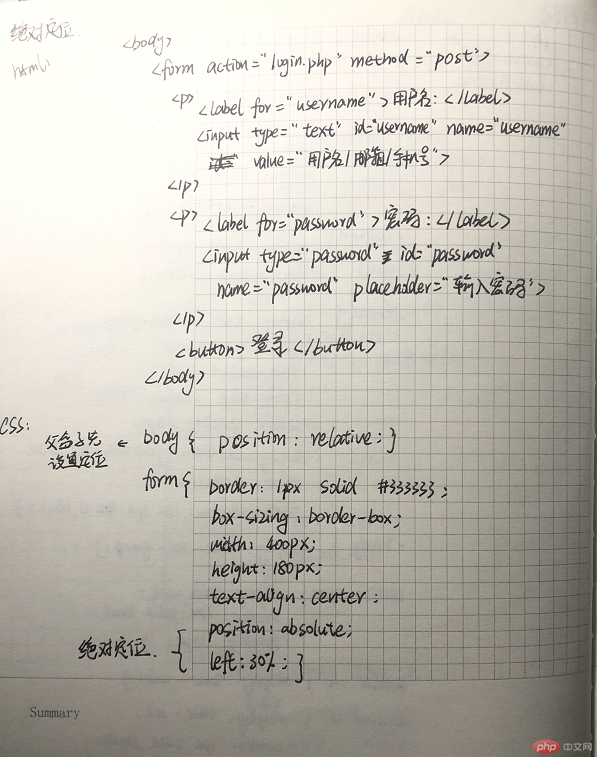 绝对定位.
html:
<body>
<form action="login.php" method="post">
<p> <label for="username">用户名:</label>
<input type="text" id="username" name="username"
value="用户名/邮箱/手机号">
</p>
<p> <label for="password">密码:</label>
<input type="password" id="password"
name="password" placehdder="输入密码">
</p>
<button>登录</button>
</body>
CSS:
父盒子先
设置定位
← body { position: relative; }
form {
border: 1px solid #333333;
box-sizing: border-box;
width: 400px;
height: 180px;
text-align: center;
position: absolute;
绝对定位.
left: 30%; }
Summary
php 中文网